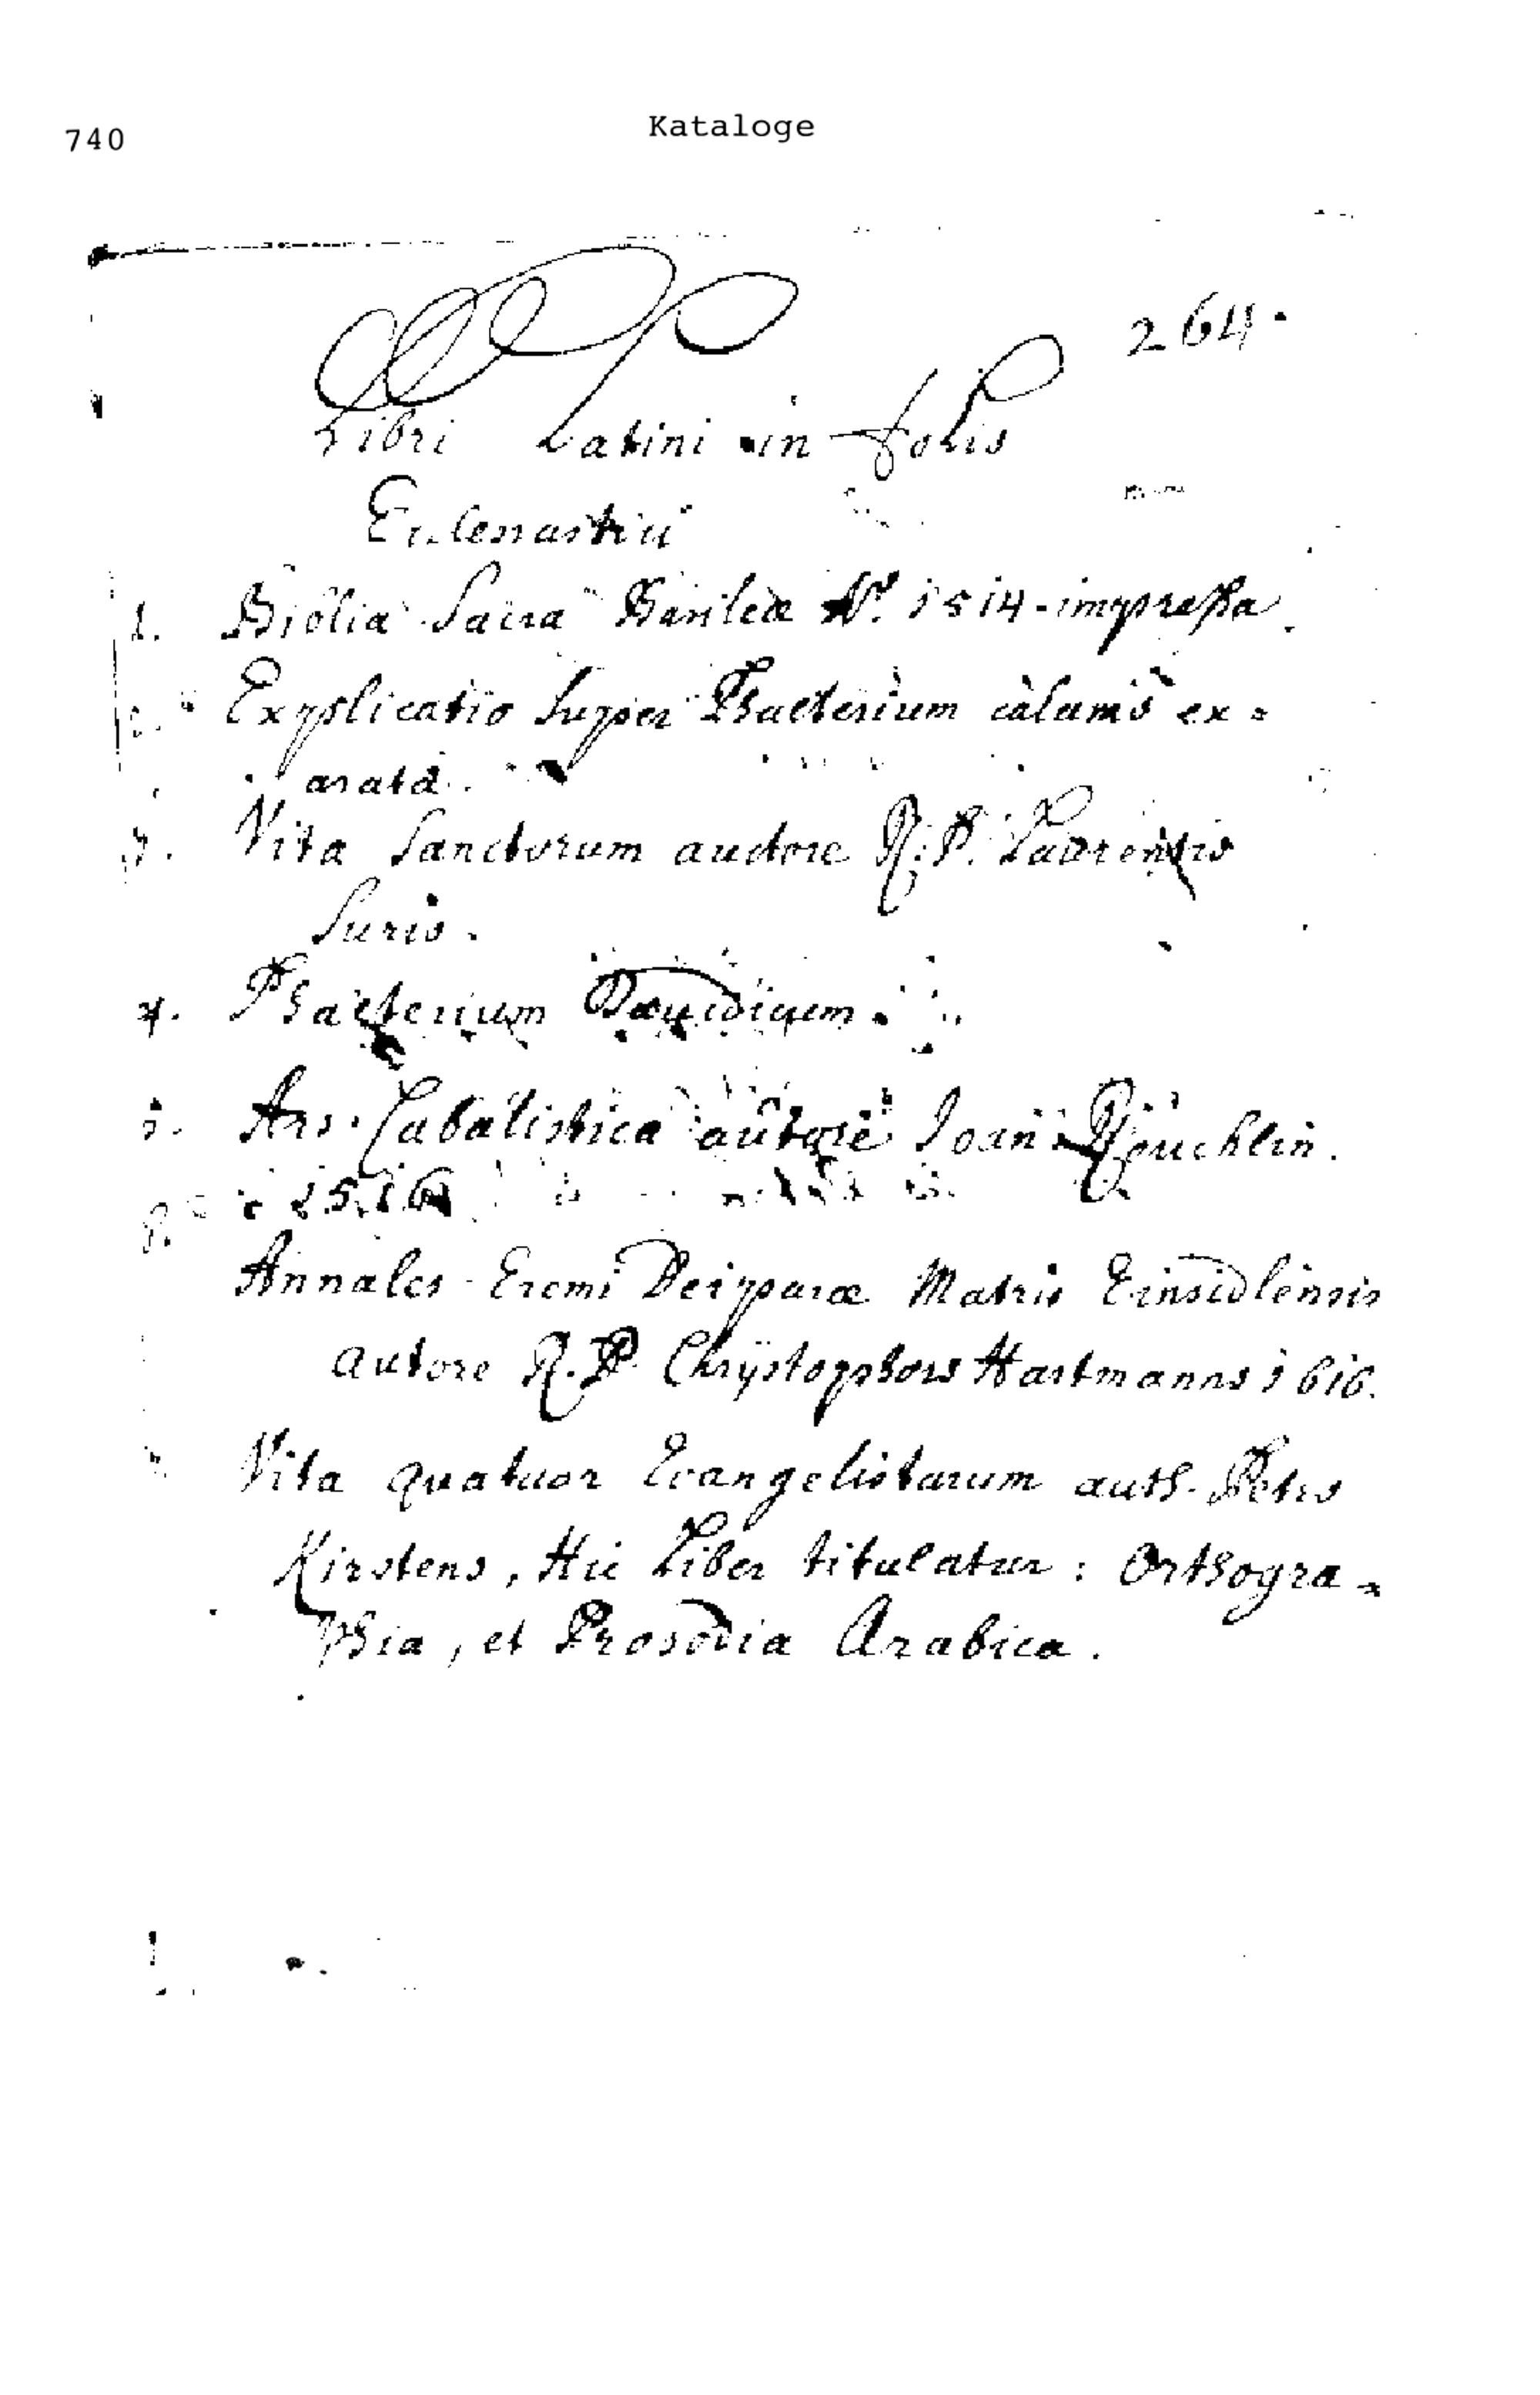 740
Kataloge
264.
Libri Latini in folio
Ecclesiastici
1. Biblia Sacra Basileæ Aº. 1514. impressa.
2. Explicatio super Psalterium calamo ex=
arata.
3. Vita Sanctorum auctore R: P. Laurentio
Surio.
4. Psalterium Davidicum.
5. Ars Cabalistica autore Ioan: Reuchlin.
1516
6.
Annales Eremi Deiparæ Matris Einsidlensis
autore R. P. Chrystophoro Hartmanno 1616.
Vita quatuor Evangelistarum auth. Petro
Kirsteno, Hic Liber titulatur: Orthogra=
phia, et Prosodia Arabica.